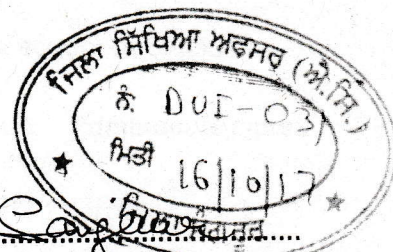 ਜਿਲਾ ਸਿੱਖਿਆ ਅਫਸਰ (ਐ.ਸਿ.)
ਨੰ: DUI-03
ਮਿਤੀ
16/10/17